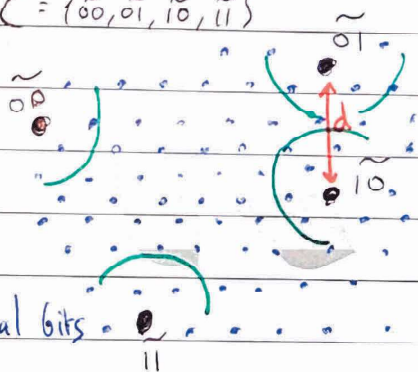 C = {00, 01, 10, 11}
01
00
d
10
al bits
11